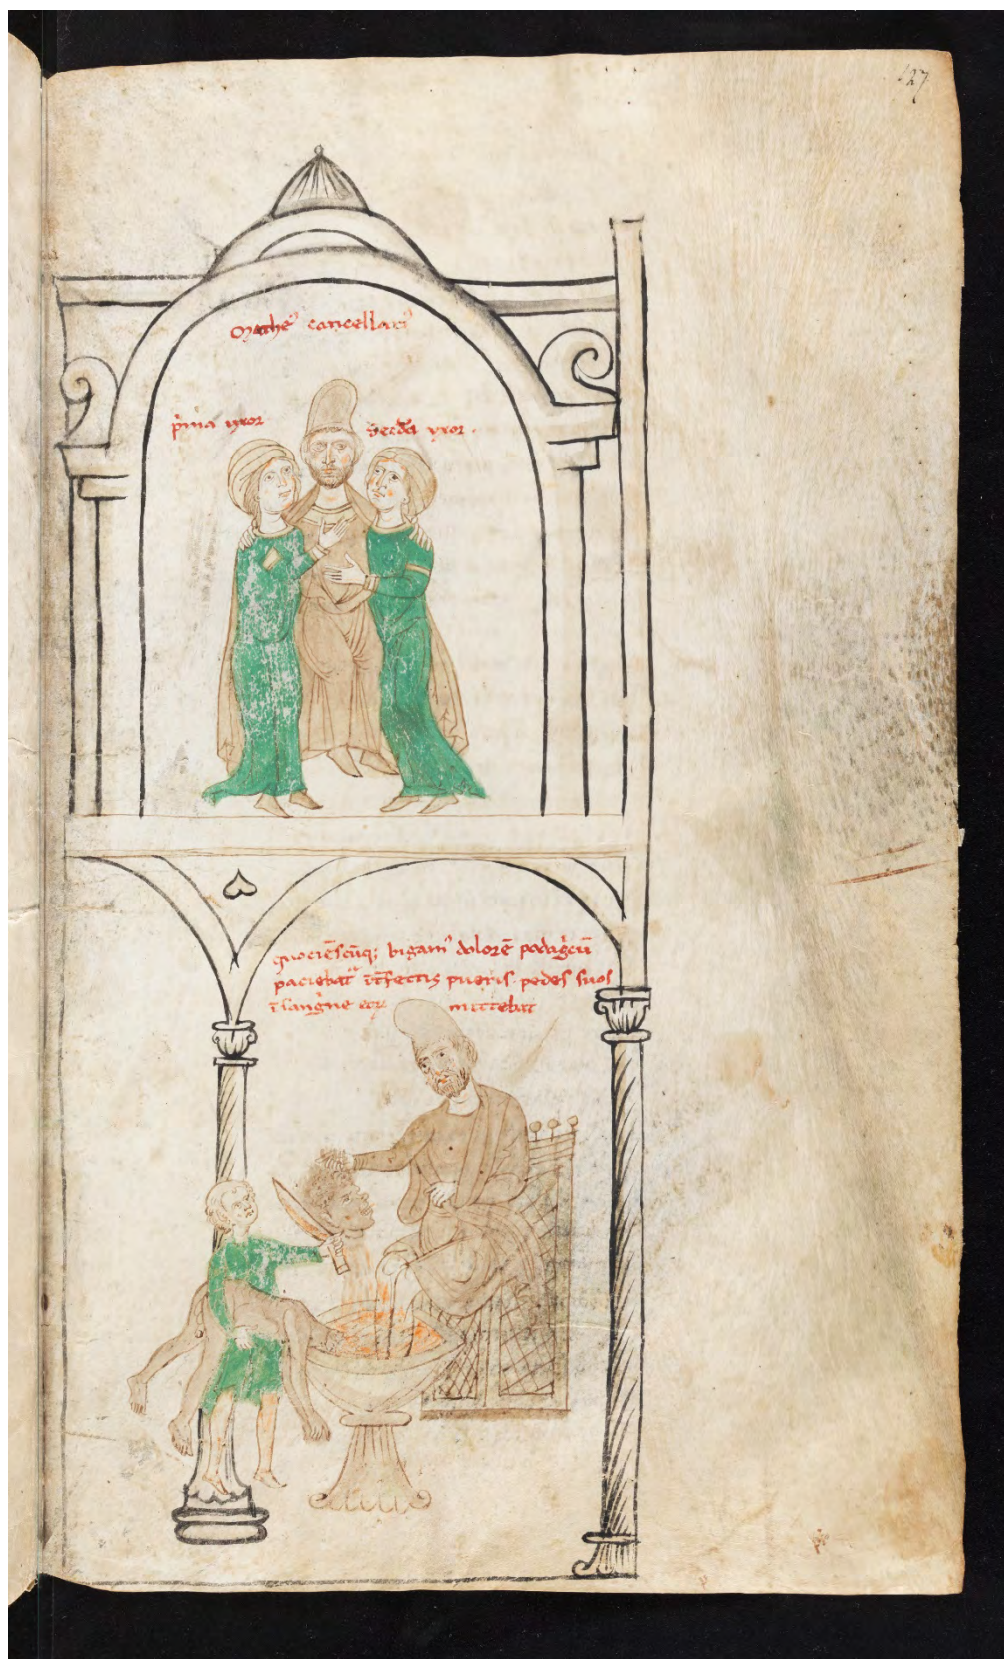 127
Mathe᾽ cancellari᾽
p'ma uxor
Secūda uxor.
quociēscūq; bigam᾽ dolorē podag'cū
paciebat᾽ īt'fectis pueris. pedes suos
ī sang'ne eoꝝ mittebat